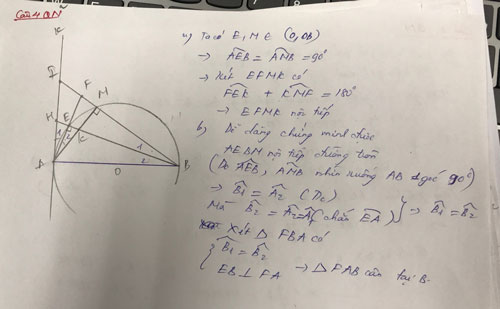 Câu 4 QN
x
I
F
M
H
E
K
1
2
1
2
A
O
B
a) Ta có E, M ∈ (O, OB)
→ AEB = AMB = 90°
→ Xét EFMK có
FEK + KMF = 180°
→ EFMK nội tiếp
b, Dễ dàng chứng minh được
AEBM nội tiếp đường tròn
(Do AEB, AMB nhìn xuống AB góc 90°)
→ B1 = A2
Mà B2 = A1 (chắn EA) } → B1 = B2
Xét Δ FBA có
{ B1 = B2
EB ⊥ FA → Δ FAB cân tại B.